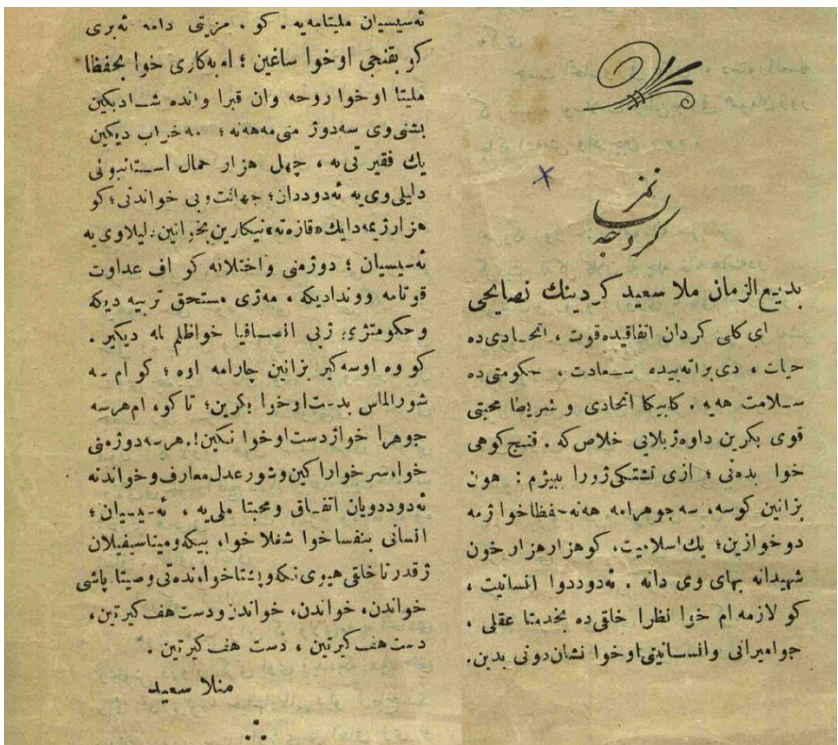 كردجه لسانمز
بديع الزمان ملا سعيد كردينك نصايحى
اى كلى كردان اتفاقيده قوت ، اتحادى ده
حيات ، دى براتهييده سعادت ، حكومتى ده
سلامت هيه . كابيكا اتحادى و شريطا محبتى
قوى بكرين داوه ژبلايى خلاص كه . قنج كوهى
خوا بدهنى ؛ ازى تشتكى ژورا بيژم : هون
بزانين كوسه، سه جوهرامه هنه حفظا خوا ژمه
دو خوازين؛ يك اسلاميت، كو هزار هزار خون
شهيدانه بهاى وى دانه . ئه‌دوددوا انسانيت ،
كو لازمه ام خوا نظرا خلقى ده بخدمتا عقلى ،
جواميرانى وانسانيتى اوخوا نشان دونى بدين.
ئه‌سيسيان مليتامه‌يه . كو . مزيتى دامه ئه‌برى
كو بقنجى اوخوا ساغين ؛ ام بكارى خوا بحفظا
مليتا اوخوا روحه وان قبرا وانده شاد بكين
پشنى وى سه دوژ منى مه هه‌نه ؛ مه خراب ديكين
يك فقيرتى يه ، چهل هزار حمال استانبونى
دايلى وى يه ئه‌دوددان؛ جهالت وبى خواندنى؛ كو
هزار ژيمه دايك «قازه‌ته» نيكارين بخوانين: ليلاوى يه
ئه‌سيسيان ؛ دوژمنى واختلانه كو اف عداوت
قوتامه ووندا ديكه ، مه‌ژى مستحق تربيه ديكه
وحكومت ژى ژبى انصافيا خوا ظلم له ديكير .
كو وه اوسه كير بزانين چارامه اوه ؛ كو ام سه
شور الماس بدست اوخوا بكرين؛ تاكو، ام هرسه
جوهرا خوا ژدست اوخوا نكين!. هرسه دوژمنى
خوا، سر خوا راكين و شور عدل معارف و خواندنه
ئه‌دوددويان اتفاق ومحبتا ملى يه ، ئه‌سيسيان ؛
انسانى بنفسا خوا شغلا خوا، بيكه و مينا سيفيلان
ژ قدرتا خلقى هيوى نكه و پشتا خوا، نده‌تى وصيتا پاشى
خواندن، خواندن، خواندن و دست هف كيرتين،
دست هف كيرتين ، دست هف كيرتين .
منلا سعيد